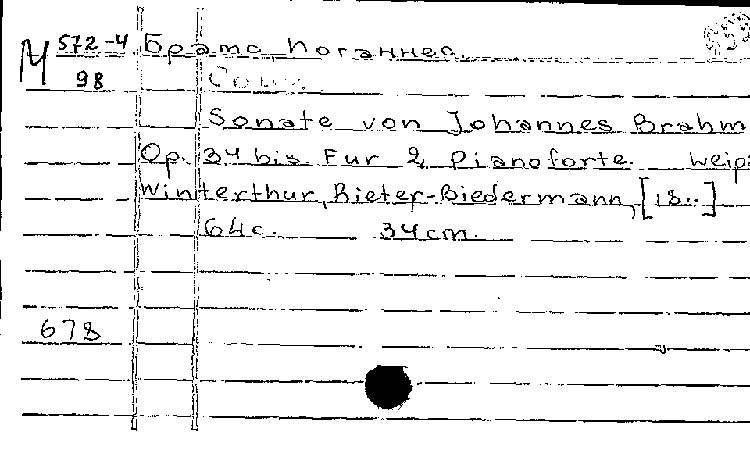 М 572-4 Брамс, Йоганнес.
98
Sonate von Johannes Brahm
Op. 34 bis Für 2 Pianoforte. Leip
Winterthur, Rieter-Biedermann, [18..]
64с. 34cm.
678